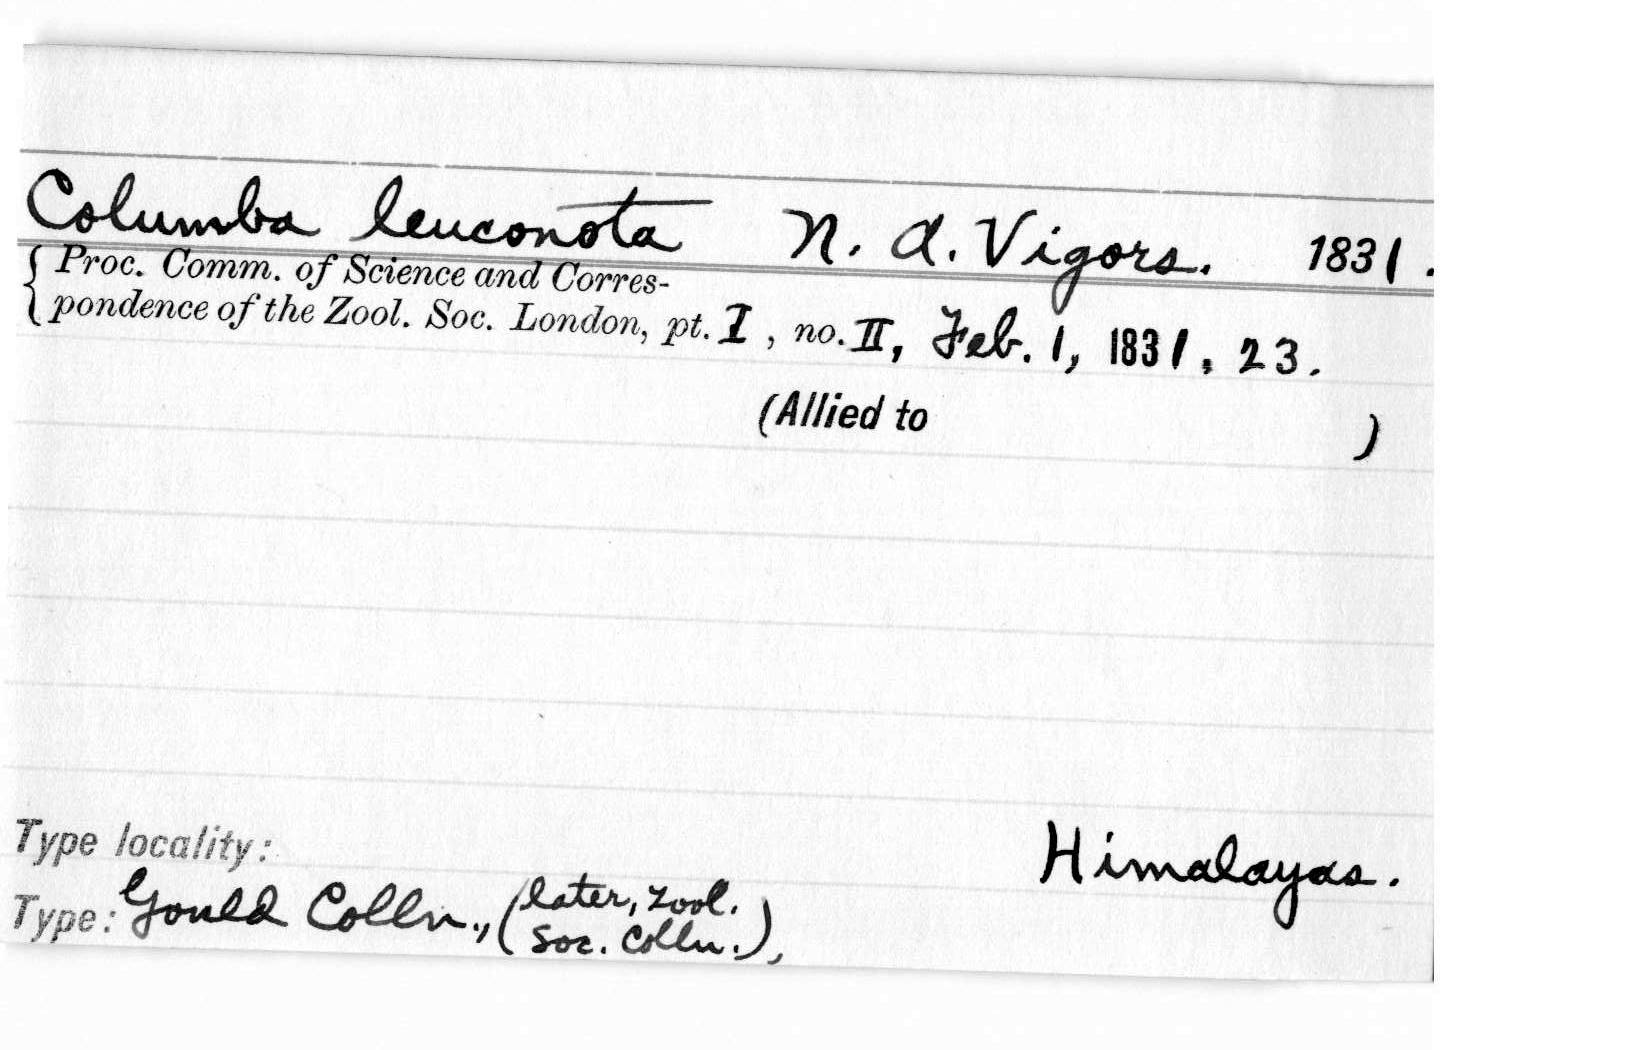 Columba leuconota N. A. Vigors. 1831.
{ Proc. Comm. of Science and Corres-
pondence of the Zool. Soc. London, pt. I, no. II, Feb. 1, 1831, 23.
(Allied to )
Type locality: Himalayas.
Type: Gould Colln., (later, Zool.
Soc. Colln.),